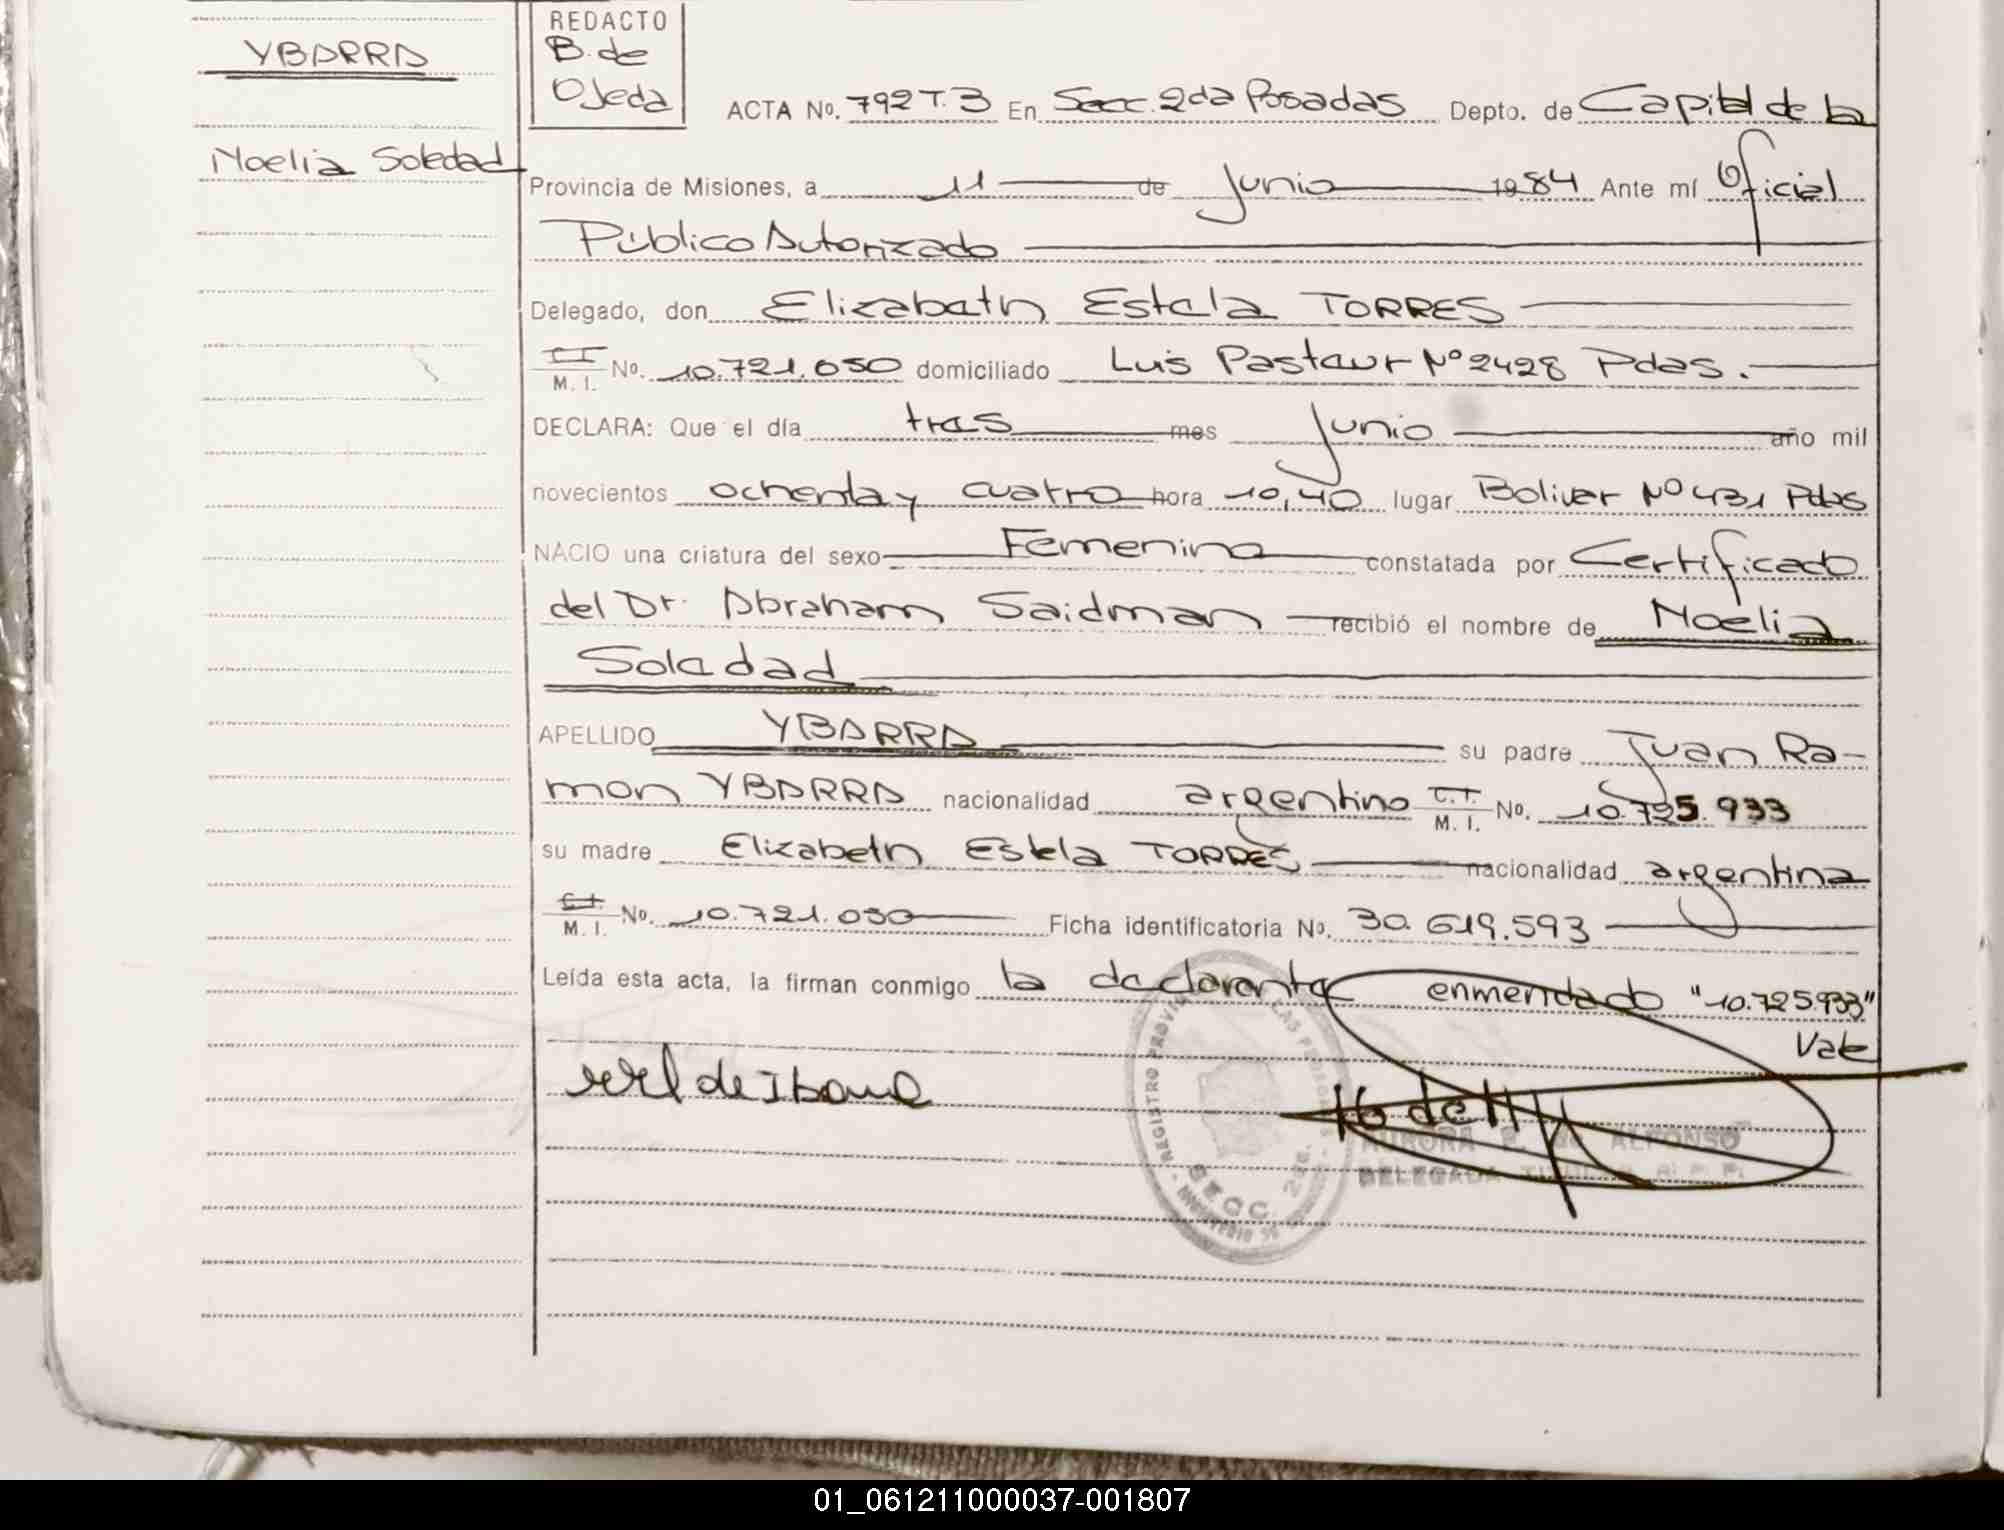 YBARRA
Noelia Soledad
REDACTO
B. de
Ojeda
ACTA No. 792 T. 3 En Secc. 2da Posadas Depto. de Capital de la
Provincia de Misiones, a 11 de Junio 1984 Ante mí Oficial
Público Autorizado
Delegado, don Elizabeth Estela TORRES
C.I. M. I. No. 10.721.050 domiciliado Luis Pasteur Nº 2428 Pdas.
DECLARA: Que el día tres mes Junio año mil
novecientos ochenta y cuatro hora 10,40 lugar Bolivar Nº 431 Pdas
NACIO una criatura del sexo Femenino constatada por Certificado
del Dr. Abraham Saidman recibió el nombre de Noelia
Soledad
APELLIDO YBARRA su padre Juan Ra-
mon YBARRA nacionalidad argentino C.I. M. I. No. 10.725.933
su madre Elizabeth Estela TORRES nacionalidad argentina
C.I. M. I. No. 10.721.050 Ficha identificatoria No. 30.619.593
Leída esta acta, la firman conmigo la declarante enmendado "10.725.933"
Vale
AURORA de ALFONSO
DELEGADA TITULAR
REGISTRO
MINISTERIO DE
01_061211000037-001807